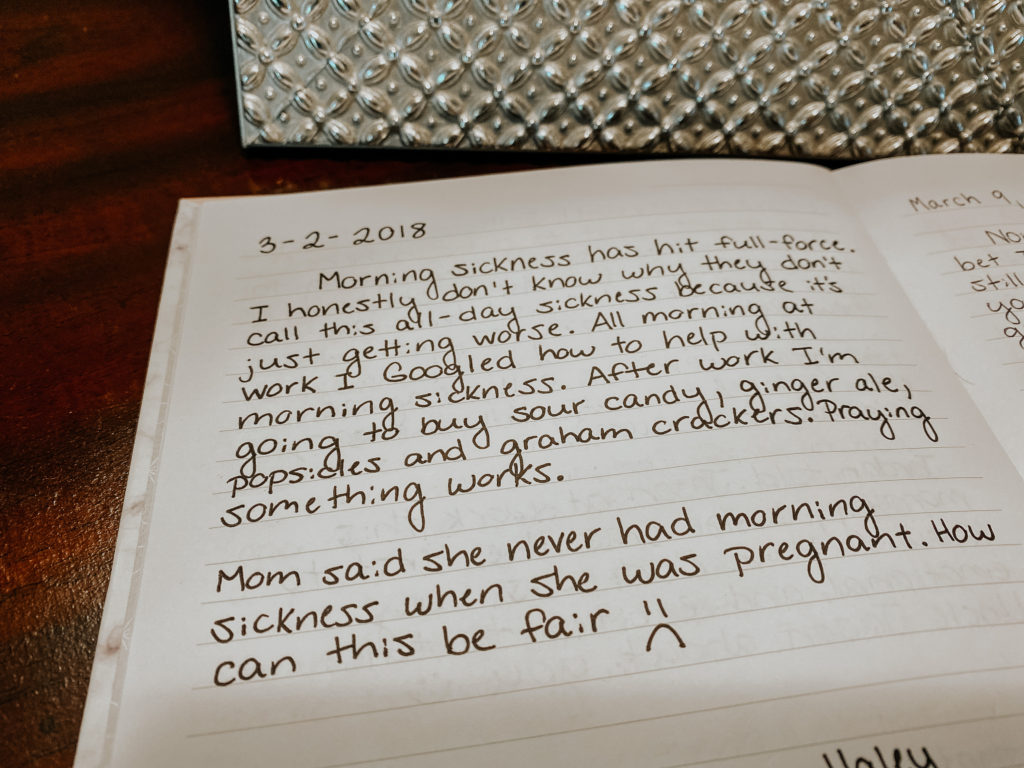 3-2-2018
Morning sickness has hit full-force.
I honestly don't know why they don't
call this all-day sickness because it's
just getting worse. All morning at
work I Googled how to help with
morning sickness. After work I'm
going to buy sour candy, ginger ale,
popsicles and graham crackers. Praying
something works.
Mom said she never had morning
sickness when she was pregnant. How
can this be fair :(
Haley
March 9,
bet
still